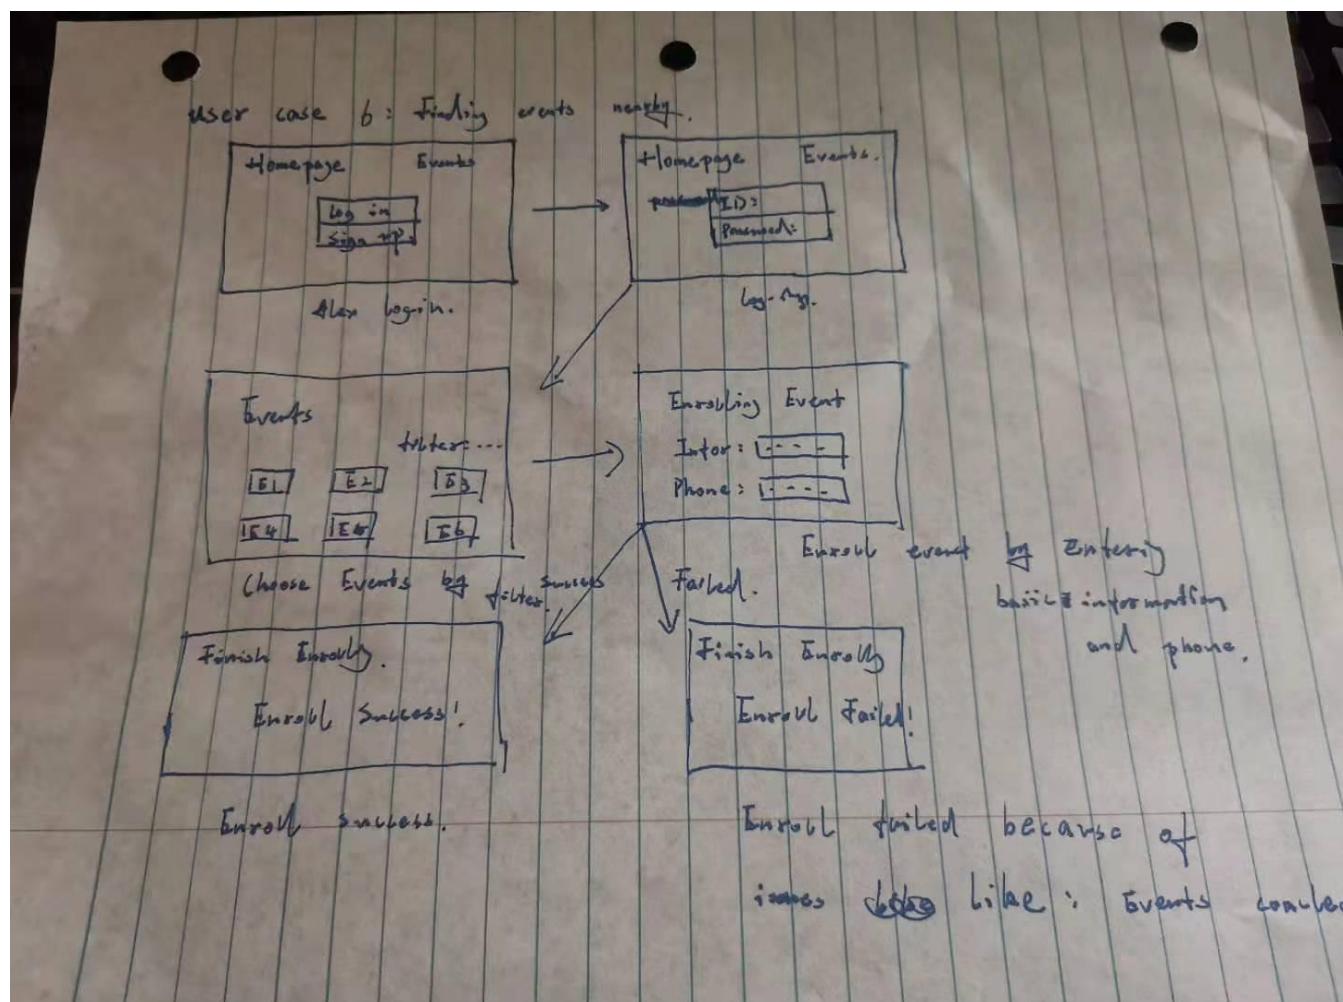 user case 6: Finding events nearby.
Homepage Events
Log in
Sign up
Alex log-in.
Homepage Events.
ID:
Password:
Log-ing.
Events
filter: ...
E1 E2 E3
E4 E5 E6
Choose Events by filter.
Enrolling Event
Infor: ----
Phone: ----
Enroll event by Entering
basic information
and phone.
Success
Failed.
Finish Enrolly.
Enroll Success!
Enroll Success.
Finish Enrolly
Enroll Failed!
Enroll failed because of
issues like: Events